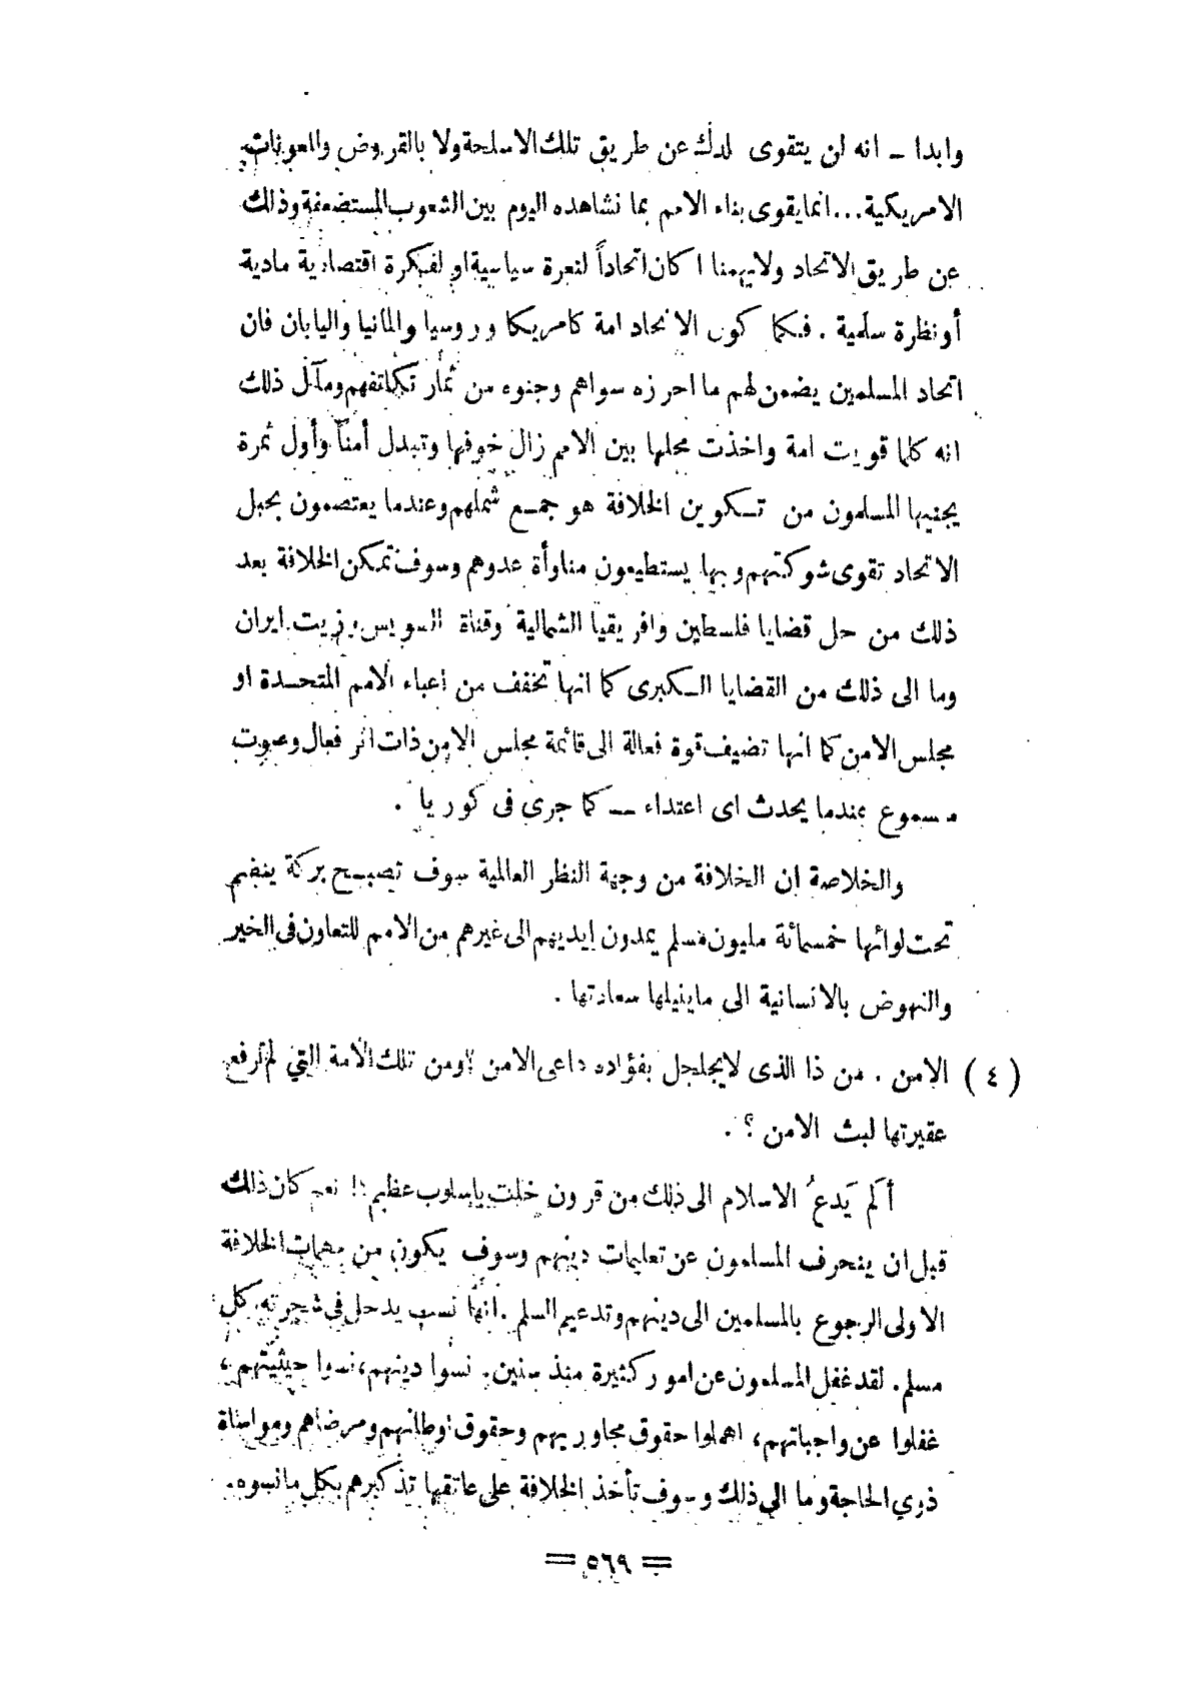 وابدا ـ انه لن يتقوى لدك عن طريق تلك الاسلحة ولا بالقروض والمعونات
الامريكية... انما يقوى بناء الامم بما نشاهده اليوم بين الشعوب المستضعفة وذلك
عن طريق الاتحاد ولا يهمنا اكان اتحاداً لنعرة سياسية او لفكرة اقتصادية مادية
أو نظرة سلمية . فكما كون الاتحاد امة كامريكا وروسيا والمانيا واليابان فان
اتحاد المسلمين يضمن لهم ما احرزه سواهم وجنوه من ثمار تكاتفهم ومآل ذلك
انه كلما قويت امة واخذت محلها بين الامم زال خوفها وتبدل أمناً وأول ثمرة
يجنيها المسلمون من تكوين الخلافة هو جمع شملهم وعندما يعتصمون بحبل
الاتحاد تقوى شوكتهم وبها يستطيعون مناوأة عدوهم وسوف تمكن الخلافة بعد
ذلك من حل قضايا فلسطين وافريقيا الشمالية وقناة السويس وزيت ايران
وما الى ذلك من القضايا الكبرى كما انها تخفف من اعباء الامم المتحدة او
مجلس الامن كما انها تضيف قوة فعالة الى قائمة مجلس الامن ذات اثر فعال وصوت
مسموع عندما يحدث اى اعتداء ـ كما جرى فى كوريا .
والخلاصة ان الخلافة من وجهة النظر العالمية سوف تصبح بركة ينضم
تحت لوائها خمسمائة مليون مسلم يمدون ايديهم الى غيرهم من الامم للتعاون فى الخير
والنهوض بالانسانية الى ما ينيلها سعادتها .
( ٤ ) الامن . من ذا الذى لا يجلجل بفؤاده داعى الامن ؟ ومن تلك الامة التي لم ترفع
عقيرتها لبث الامن ؟ .
ألم يَدعُ الاسلام الى ذلك من قرون خلت باسلوب عظيم ؟! نعم كان ذلك
قبل ان ينحرف المسلمون عن تعليمات دينهم وسوف يكون من مهمات الخلافة
الاولى الرجوع بالمسلمين الى دينهم وتدعيم السلم . انها نسب يدخل فى شجرته كل
مسلم. لقد غفل المسلمون عن امور كثيرة منذ سنين. نسوا دينهم، نسوا حيثيتهم،
غفلوا عن واجباتهم، اهملوا حقوق مجاوريهم وحقوق اوطانهم ومرضاهم ومواساة
ذوي الحاجة وما الى ذلك وسوف تأخذ الخلافة على عاتقها تذكيرهم بكل ما نسوه.
= ٥٦٩ =